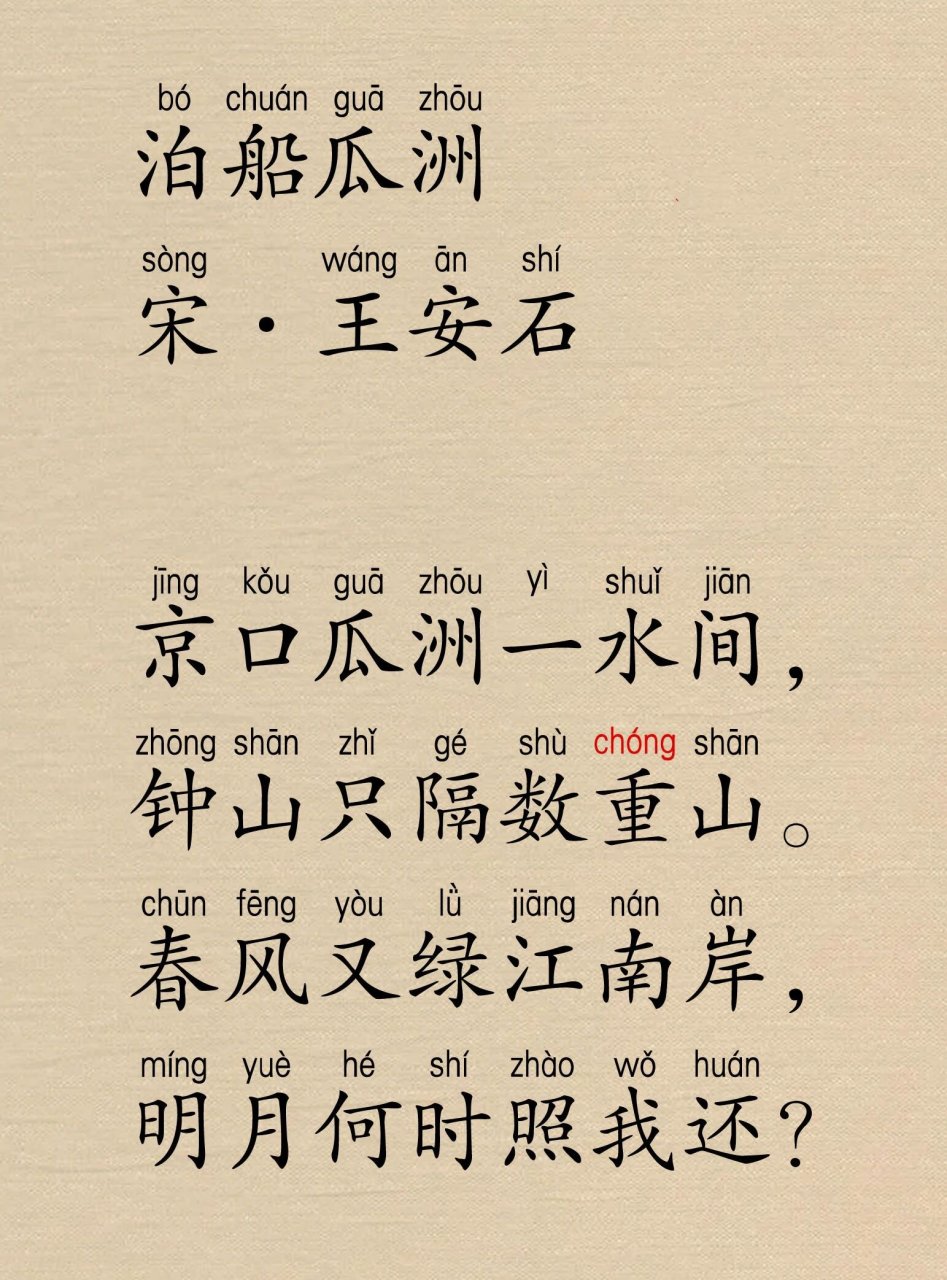 bó chuán guā zhōu
泊船瓜洲
sòng wáng ān shí
宋·王安石
jīng kǒu guā zhōu yì shuǐ jiān
京口瓜洲一水间，
zhōng shān zhǐ gé shù chóng shān
钟山只隔数重山。
chūn fēng yòu lǜ jiāng nán àn
春风又绿江南岸，
míng yuè hé shí zhào wǒ huán
明月何时照我还？